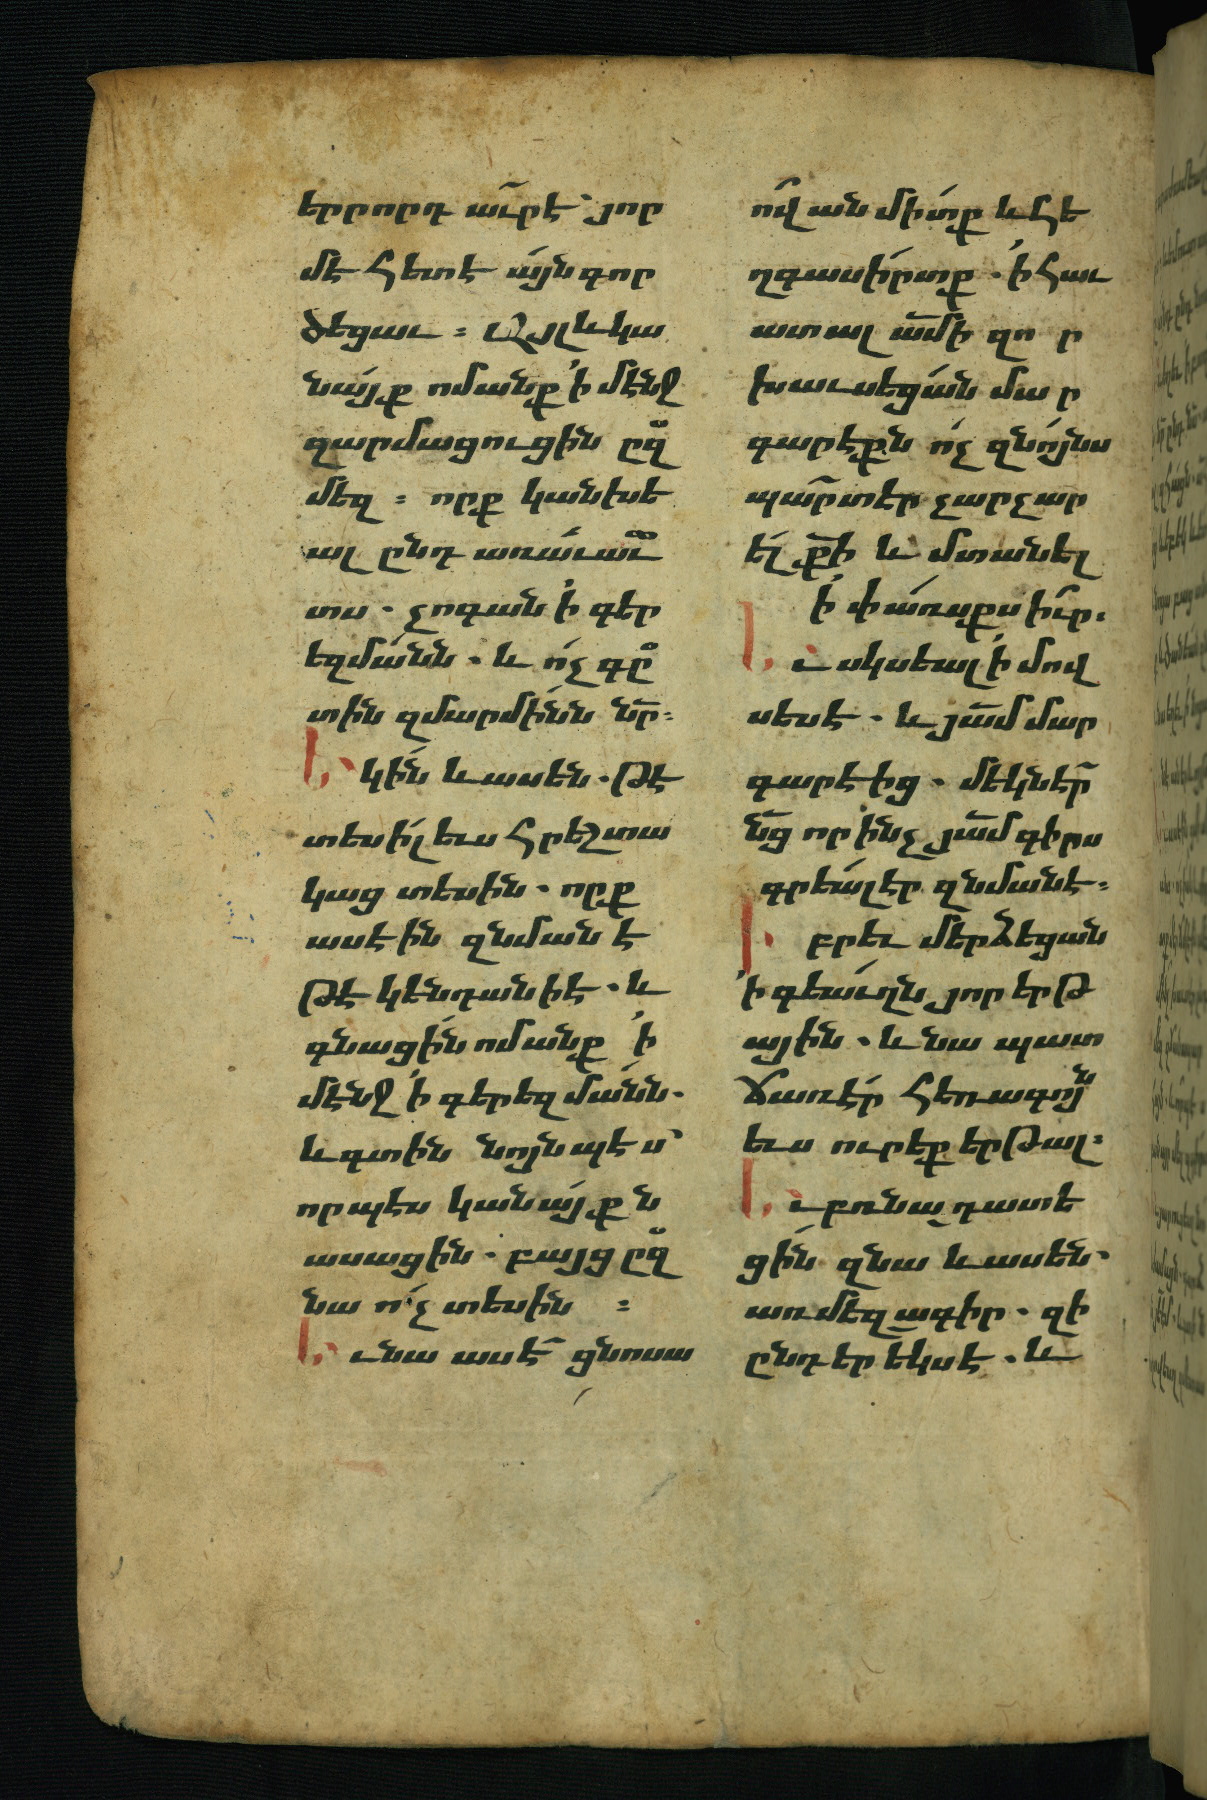 երրորդ աւր է՝ յոր
մէ հետէ այն գոր
ծեցաւ ։ Այլ և կա
նայք ոմանք ՚ի մէնջ
զարմացուցին ըզ
մեզ ։ որք կանխե
ալ ընդ առաւաւ
տս · չոգան ՚ի գեր
եզմանն · և ոչ գը
տին զմարմինն նր ։
Եկին և ասեն · թէ
տեսիլ ևս հրեշտա
կաց տեսին · որք
ասէին զնմանէ
թէ կենդանի է · և
գնացին ոմանք ՚ի
մէնջ ՚ի գերեզմանն ·
և գտին նոյնպէս՝
որպէս կանայքն
ասացին · բայց ըզ
նա ոչ տեսին ։
Եւ նա ասէ ցնոսա
ով անմիտք և հե
ղգասիրտք · ՚ի հաւ
ատալ ամի զոր
խաւսեցան մար
գարէքն ոչ զնոյնս
պարտ էր չարչար
ել քի և մտանել
՚ի փառսքս իւր ։
Եւ սկսեալ ՚ի մով
սեսէ · և յամ մար
գարէից · մեկնէր
նց որ ինչ յամ գիրս
գրեալ էր զնմանէ ։
Իբրև մերձեցան
՚ի գեաւղն յոր երթ
ային · և նա պատ
ճառէր հեռագոյն
ևս ուրեք երթալ ։
Եւ բռնադատե
ցին զնա և ասեն ·
առ մեզ ագիր · զի
ընդ երեկս է · և